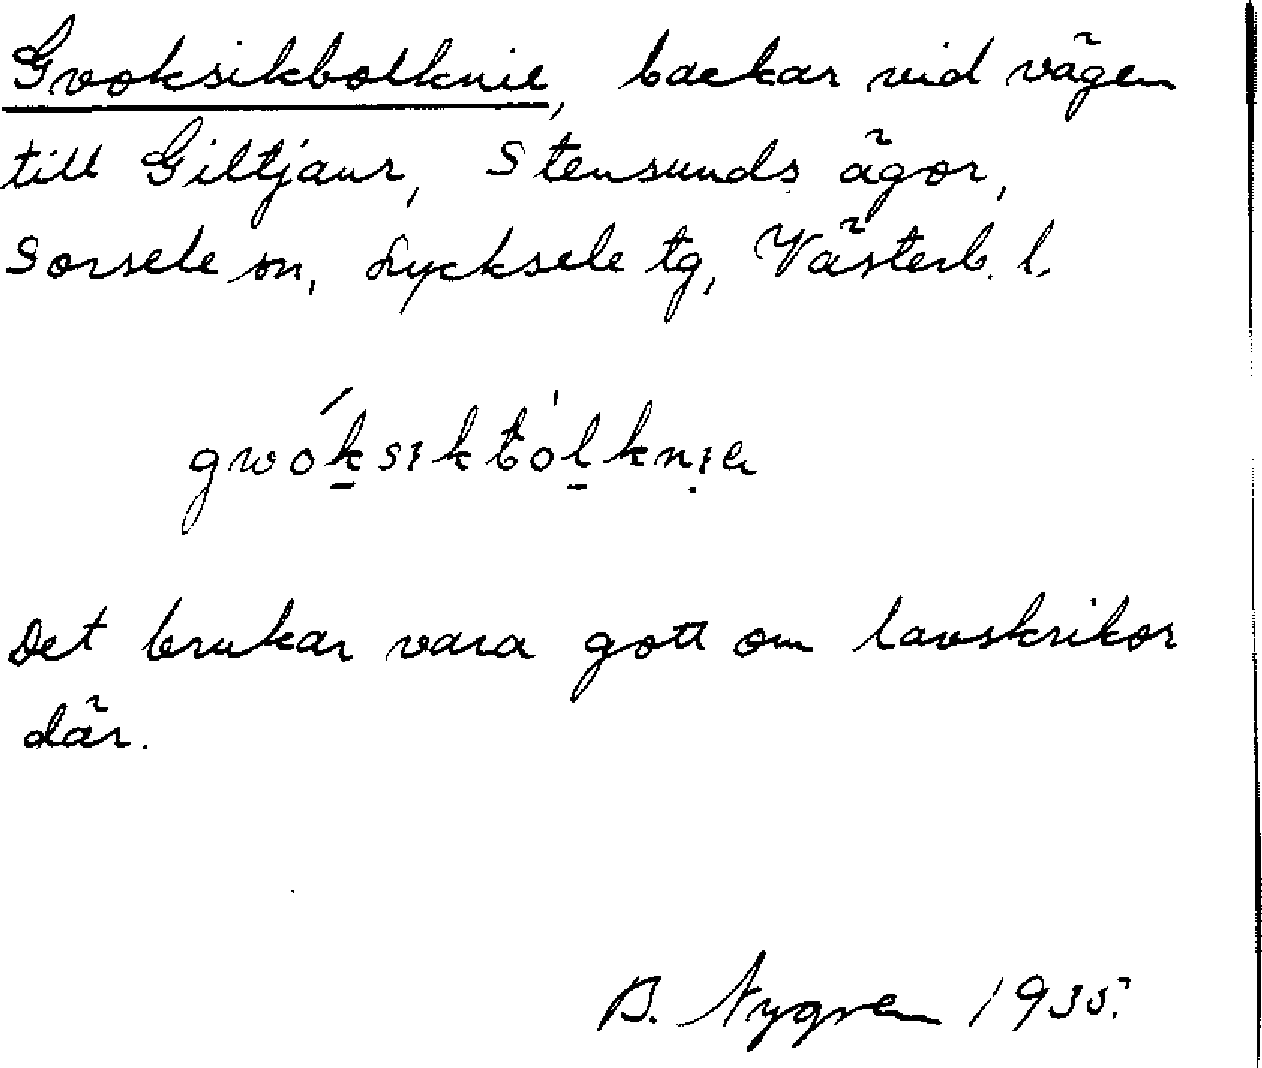 Gvoksikbolknie, backar vid vägen
till Giltjaur, Stensunds ägor,
Sorsele sn, Lycksele tg, Västerb. l.
gwóksiktólknie
Det brukar vara gott om lavskrikor
där.
B. Nygren 1935.